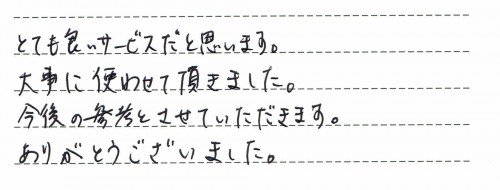 とても良いサービスだと思います。
大事に使わせて頂きました。
今後の参考とさせていただきます。
ありがとうございました。